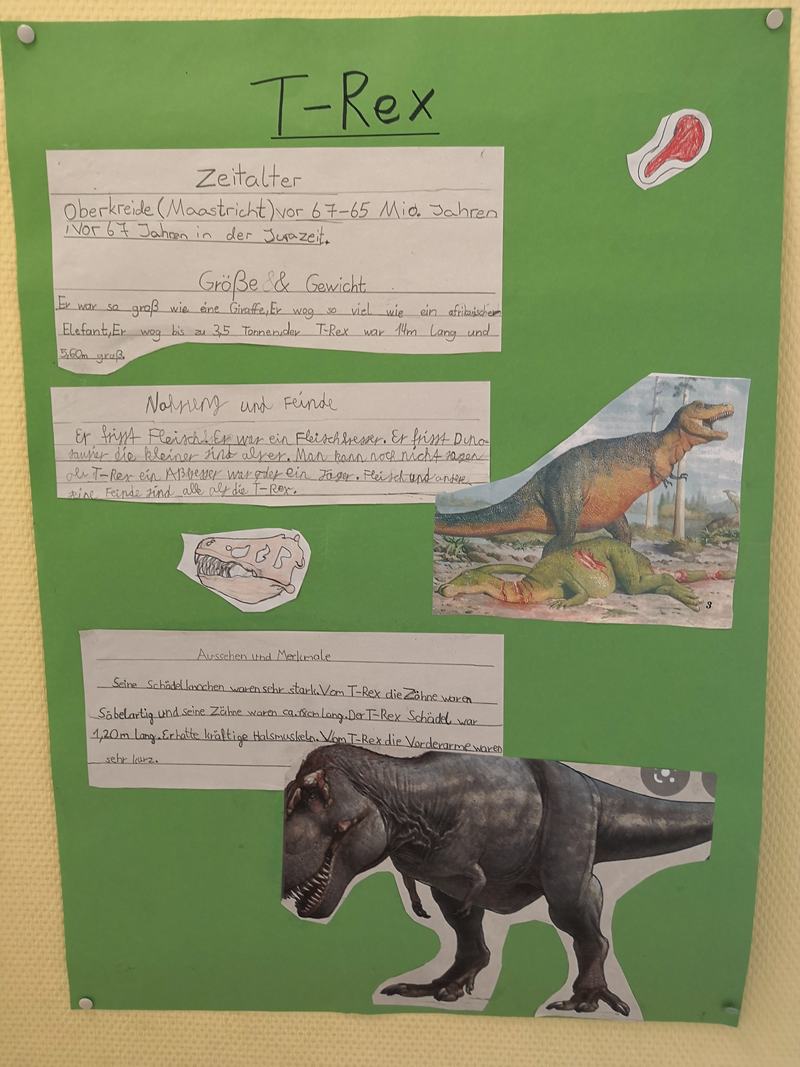 T-Rex
Zeitalter
Oberkreide (Maastricht) vor 67-65 Mio. Jahren
vor 67 Jahren in der Jurazeit.
Größe & Gewicht
Er war so groß wie eine Giraffe, Er wog so viel wie ein afrikanischer
Elefant, Er wog bis zu 3,5 Tonnen, der T-Rex war 14m lang und
5,60m groß.
Nahrung und Feinde
Er frisst Fleisch. Er war ein Fleischfresser. Er frisst Dino-
saurier die kleiner sind als er. Man kann noch nicht sagen
ob T-Rex ein Aßfresser war oder ein Jäger. Fleisch und andere
seine Feinde sind alle als die T-Rex.
3
Aussehen und Merkmale
Seine Schädelknochen waren sehr stark. Vom T-Rex die Zähne waren
Säbelartig und seine Zähne waren ca. 18cm lang. Der T-Rex Schädel war
1,20m lang. Er hatte kräftige Halsmuskeln. Vom T-Rex die Vorderarme waren
sehr kurz.